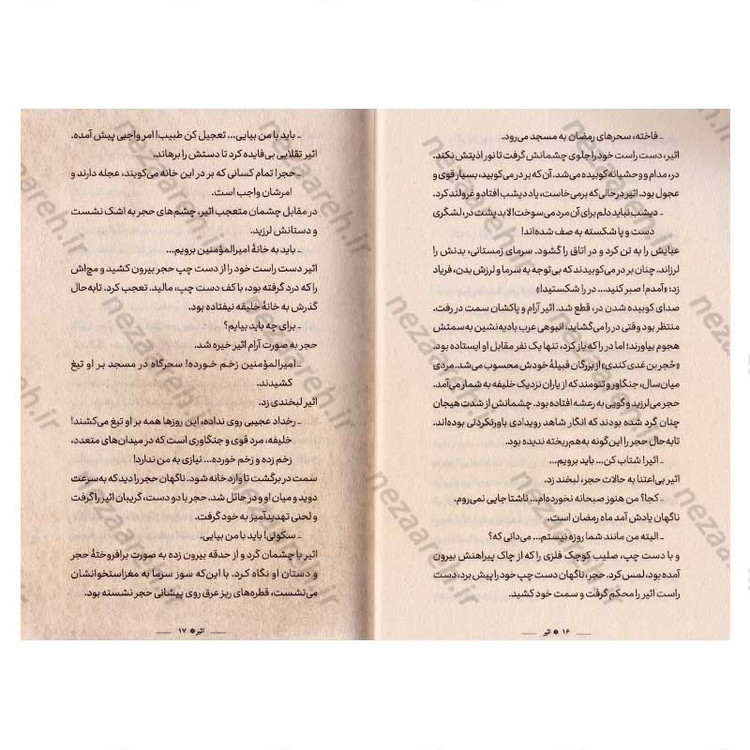 ـ فاخته، سحرهای رمضان به مسجد می‌رود.
اثیر، دست راست خود را جلوی چشمانش گرفت تا نور اذیتش نکند.
در، مدام و وحشیانه کوبیده می‌شد. آن که بر در می‌کوبید، بسیار قوی و
عجول بود. اثیر در حالی که برمی‌خاست، یاد دیشب افتاد و غرولند کرد.
ـ دیشب نباید دلم برای آن مرد می‌سوخت! لابد پشت در، لشگری
دست و پا شکسته به صف شده‌اند!
عبایش را به تن کرد و در اتاق را گشود. سرمای زمستانی، بدنش را
لرزاند. چنان بر در می‌کوبیدند که بی‌توجه به سرما و لرزش بدن، فریاد
زد: «آمدم! صبر کنید... در را شکستید!»
صدای کوبیده شدن در، قطع شد. اثیر آرام و پاکشان سمت در رفت.
منتظر بود وقتی در را می‌گشاید، انبوهی عرب بادیه‌نشین به‌سمتش
هجوم بیاورند؛ اما در را که باز کرد، تنها یک نفر مقابل او ایستاده بود.
«حُجر بن عَدی کندی» از بزرگان قبیلهٔ خودش محسوب می‌شد. مردی
میان‌سال، جنگاور و تنومند که از یاران نزدیک خلیفه به شمار می‌آمد.
حجر می‌لرزید و گویی به رعشه افتاده بود. چشمانش از شدت هیجان
چنان گرد شده بودند که انگار شاهد رویدادی باورنکردنی بوده‌اند.
تابه‌حال حجر را این‌گونه به‌هم‌ریخته ندیده بود.
ـ اثیر! شتاب کن... باید برویم...
اثیر بی‌اعتنا به حالات حجر، لبخند زد.
ـ کجا؟ من هنوز صبحانه نخورده‌ام... ناشتا جایی نمی‌روم.
ناگهان یادش آمد ماه رمضان است.
ـ البته من مانند شما روزه نیستم... می‌دانی که؟
و با دست چپ، صلیب کوچک فلزی را که از چاک پیراهنش بیرون
آمده بود، لمس کرد. حجر، ناگهان دست چپ خود را پیش برد، دست
راست اثیر را محکم گرفت و سمت خود کشید.
۱۶ * اثیر
ـ باید با من بیایی... تعجیل کن طبیب! امر واجبی پیش آمده.
اثیر تقلایی بی‌فایده کرد تا دستش را برهاند.
ـ حجر! تمام کسانی که بر در این خانه می‌کوبند، عجله دارند و
امرشان واجب است.
در مقابل چشمان متعجب اثیر، چشم‌های حجر به اشک نشست
و دستانش لرزید.
ـ باید به خانهٔ امیرالمؤمنین برویم...
اثیر دست راست خود را از دست چپ حجر بیرون کشید و مچ‌اش
را که درد گرفته بود، با کف دست چپ، مالید. تعجب کرد. تابه‌حال
گذرش به خانهٔ خلیفه نیفتاده بود.
ـ برای چه باید بیایم؟
حجر به صورت آرام اثیر خیره شد.
ـ امیرالمؤمنین زخم خورده! سحرگاه در مسجد بر او تیغ
کشیدند.
اثیر لبخندی زد.
ـ رخداد عجیبی روی نداده، این روزها همه بر او تیغ می‌کشند!
خلیفه، مرد قوی و جنگاوری است که در میدان‌های متعدد،
زخم زده و زخم خورده... نیازی به من ندارد!
سمت در برگشت تا وارد خانه شود. ناگهان حجر را دید که به‌سرعت
دوید و میان او و در حائل شد. حجر با دو دست، گریبان اثیر را گرفت
و لحنی تهدیدآمیز به خود گرفت.
ـ سکونی! باید با من بیایی.
اثیر با چشمان گرد و از حدقه بیرون زده به صورت برافروختهٔ حجر
و دستان او نگاه کرد. با این‌که سوز سرما به مغزاستخوانشان
می‌نشست، قطره‌های ریز عرق روی پیشانی حجر نشسته بود.
اثیر * ۱۷
nezaareh.ir